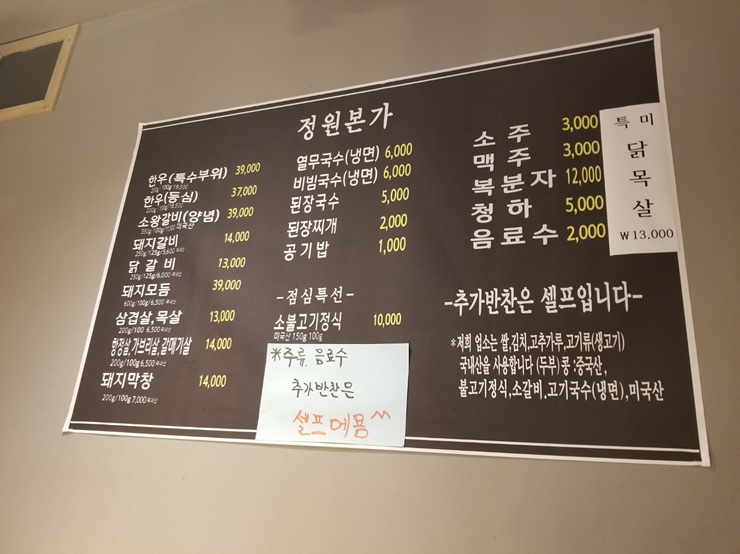 정원본가
한우(특수부위) 39,000
200g 100g 19,500
한우(등심) 37,000
200g 100g 18,500
소왕갈비(양념) 39,000
350g 100g/11,100 미국산
돼지갈비 14,000
250g/125g/5,600 국내산
닭갈비 13,000
250g/125g/6,000 국내산
돼지모듬 39,000
600g/100g/6,500 국내산
삼겹살,목살 13,000
200g/100 6,500 국내산
항정살,가브리살,갈매기살 14,000
200g/100g 6,500 국내산
돼지막창 14,000
200g/100g 7,000 국내산
열무국수(냉면) 6,000
비빔국수(냉면) 6,000
된장국수 5,000
된장찌개 2,000
공기밥 1,000
-점심특선-
소불고기정식 10,000
미국산 150g 100g
※주류, 음료수
추가반찬은
셀프예욤^^
소주 3,000
맥주 3,000
복분자 12,000
청하 5,000
음료수 2,000
특미
닭목살
₩13,000
-추가반찬은 셀프입니다-
*저희 업소는 쌀,김치,고추가루,고기류(생고기)
국내산을 사용합니다 (두부)콩·중국산,
불고기정식,소갈비,고기국수(냉면),미국산